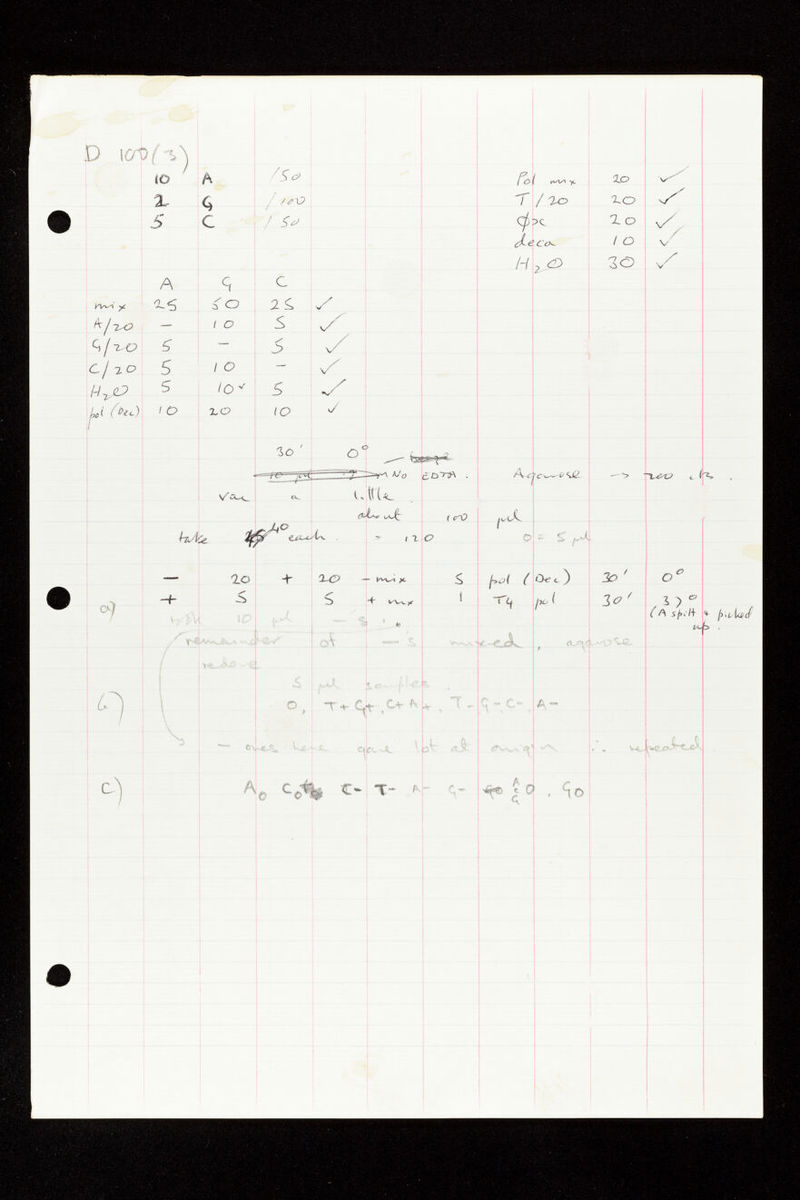 D 100(3)
10 A /50
2 G /100
5 C /50
Pol mix 20 ✓
T/20 20 ✓
ϕx 20 ✓
deca 10 ✓
H2O 30 ✓
A G C
mix 25 50 25 ✓
A/20 – 10 5 ✓
G/20 5 – 5 ✓
C/20 5 10 – ✓
H2O 5 10✓ 5 ✓
pol (Dec) 10 20 10 ✓
30' 0°
No EDTA. Agarose → 200 cts.
Vac a little.
about 100 µl
take 40 each. = 120 0 = 5 µl
– 20 + 20 – mix 5 pol (Dec) 30' 0°
a) + 5 5 + mix 1 T4 pol 30' 37°
(A spilt & picked up.
10 µl –'s.
remainder of –'s mixed, agarose
redone
5 µl samples.
b) 0, T+ G+, C+ A+, T- G- C-, A-
– ones here gave lot at origin ∴ repeated.
c) A0 C0 C- T- A- G- A C G 0, G0